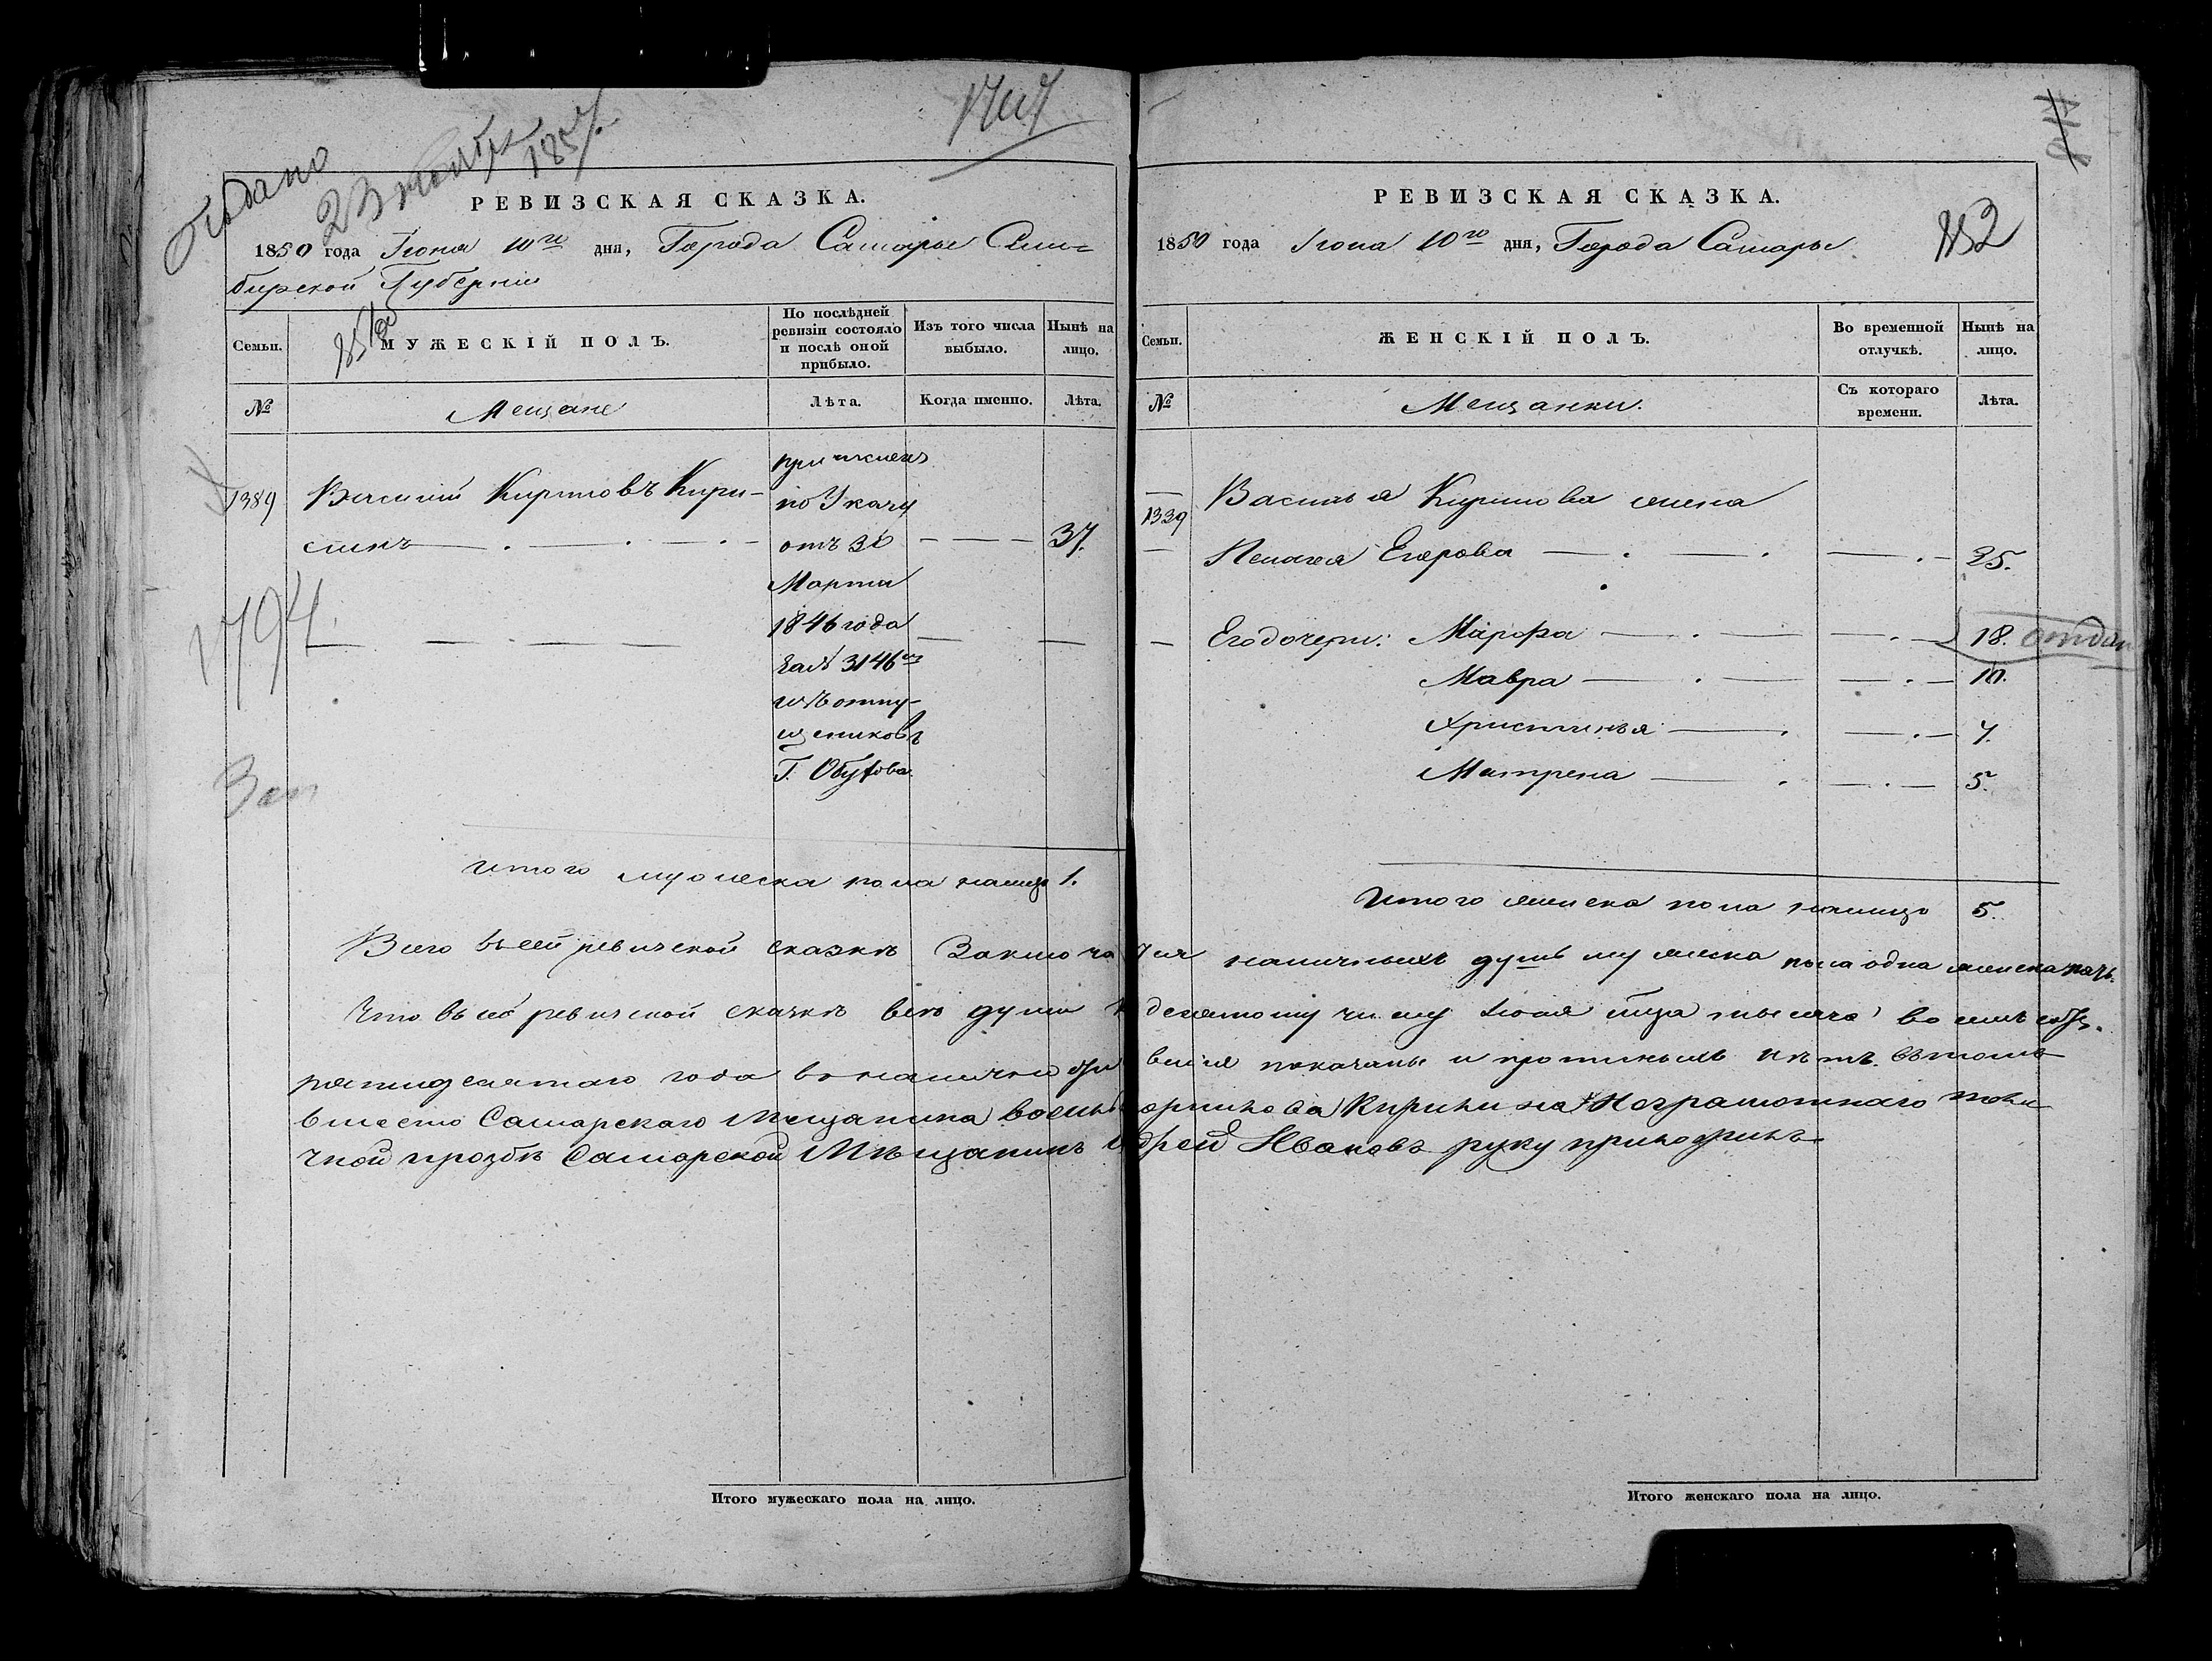 подано
23 октябр
1857
1707
РЕВИЗСКАЯ СКАЗКА.
1850 года Іюня 10го дня, Города Самары Сим=
бирской Губерніи
Семьи.
МУЖЕСКІЙ ПОЛЪ.
По послѣдней
ревизіи состояло
и послѣ оной
прибыло.
Изъ того числа
выбыло.
Нынѣ на
лицо.
№
Мещане
Лѣта.
Когда именно.
Лѣта.
1389
Василій Кириловъ Кири-
линъ
причисленъ
по Указу
отъ 30
Марта
1846 года
за № 3146 из
отпу-
щениковъ
Г. Обухова
37.
1794.
Зап
Итого мужеска пола налицо 1.
РЕВИЗСКАЯ СКАЗКА.
1850 года Іюня 10го дня, Города Самары
Семьи.
ЖЕНСКІЙ ПОЛЪ.
Во временной
отлучкѣ.
Нынѣ на
лицо.
№
Мещанки.
Съ котораго
времени.
Лѣта.
1339
Василья Кирилова жена
Пелагея Егорова 25.
Его дочери: Марфа 18. отдан
Мавра 10.
Христинья 7.
Матрена 5.
Итого женска пола налицо 5.
Всего въ сей ревизской сказкѣ Заключается наличныхъ душъ мужеска пола одна женска пять.
Что въ сей ревизской сказкѣ всѣ души к десятому числу Іюня тысяча восемь сотъ
пятидесятаго года в наличности показаны и прописныхъ нѣтъ. въ томъ
вместо Самарскаго Мещанина Василья Кирилова Кирилина Неграмотнаго по ли
чной прозбѣ Самарской Мѣщанинъ Андрей Ивановъ руку приложилъ
Итого мужескаго пола на лицо.
Итого женскаго пола на лицо.